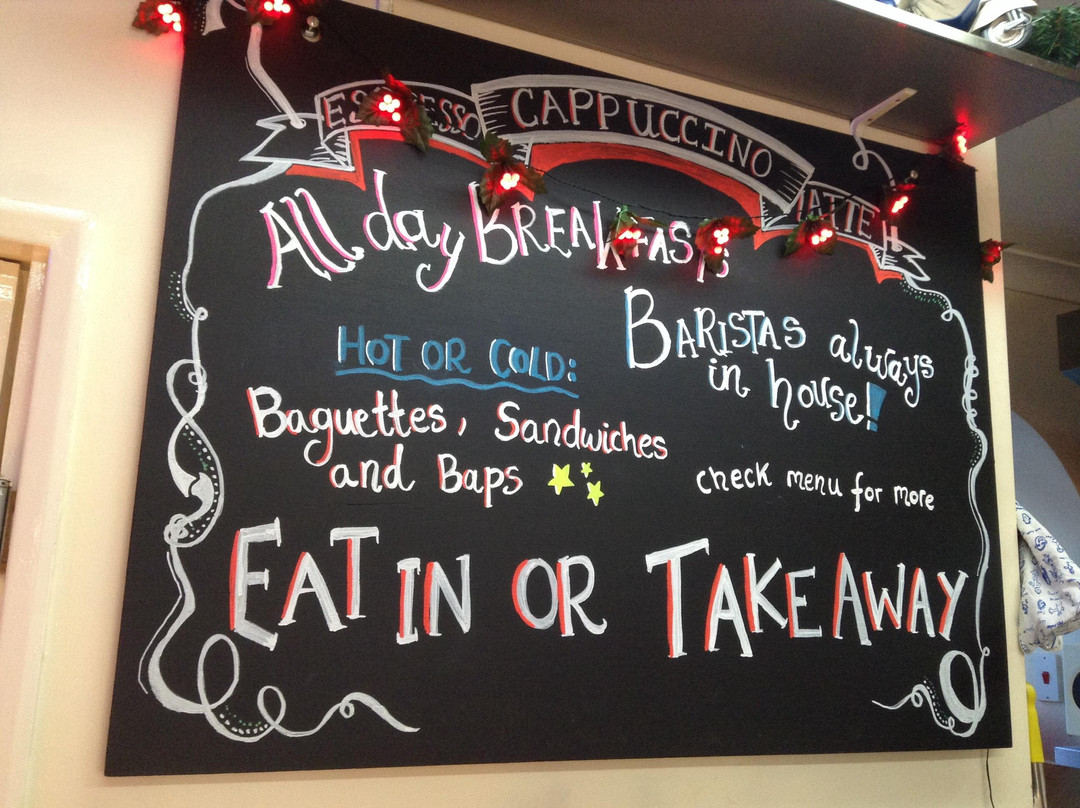 ESPRESSO CAPPUCCINO LATTE
All day BREAKFASTS
BARISTAS always
in house!
HOT OR COLD:
Baguettes, Sandwiches
and Baps
check menu for more
EAT IN OR TAKE AWAY